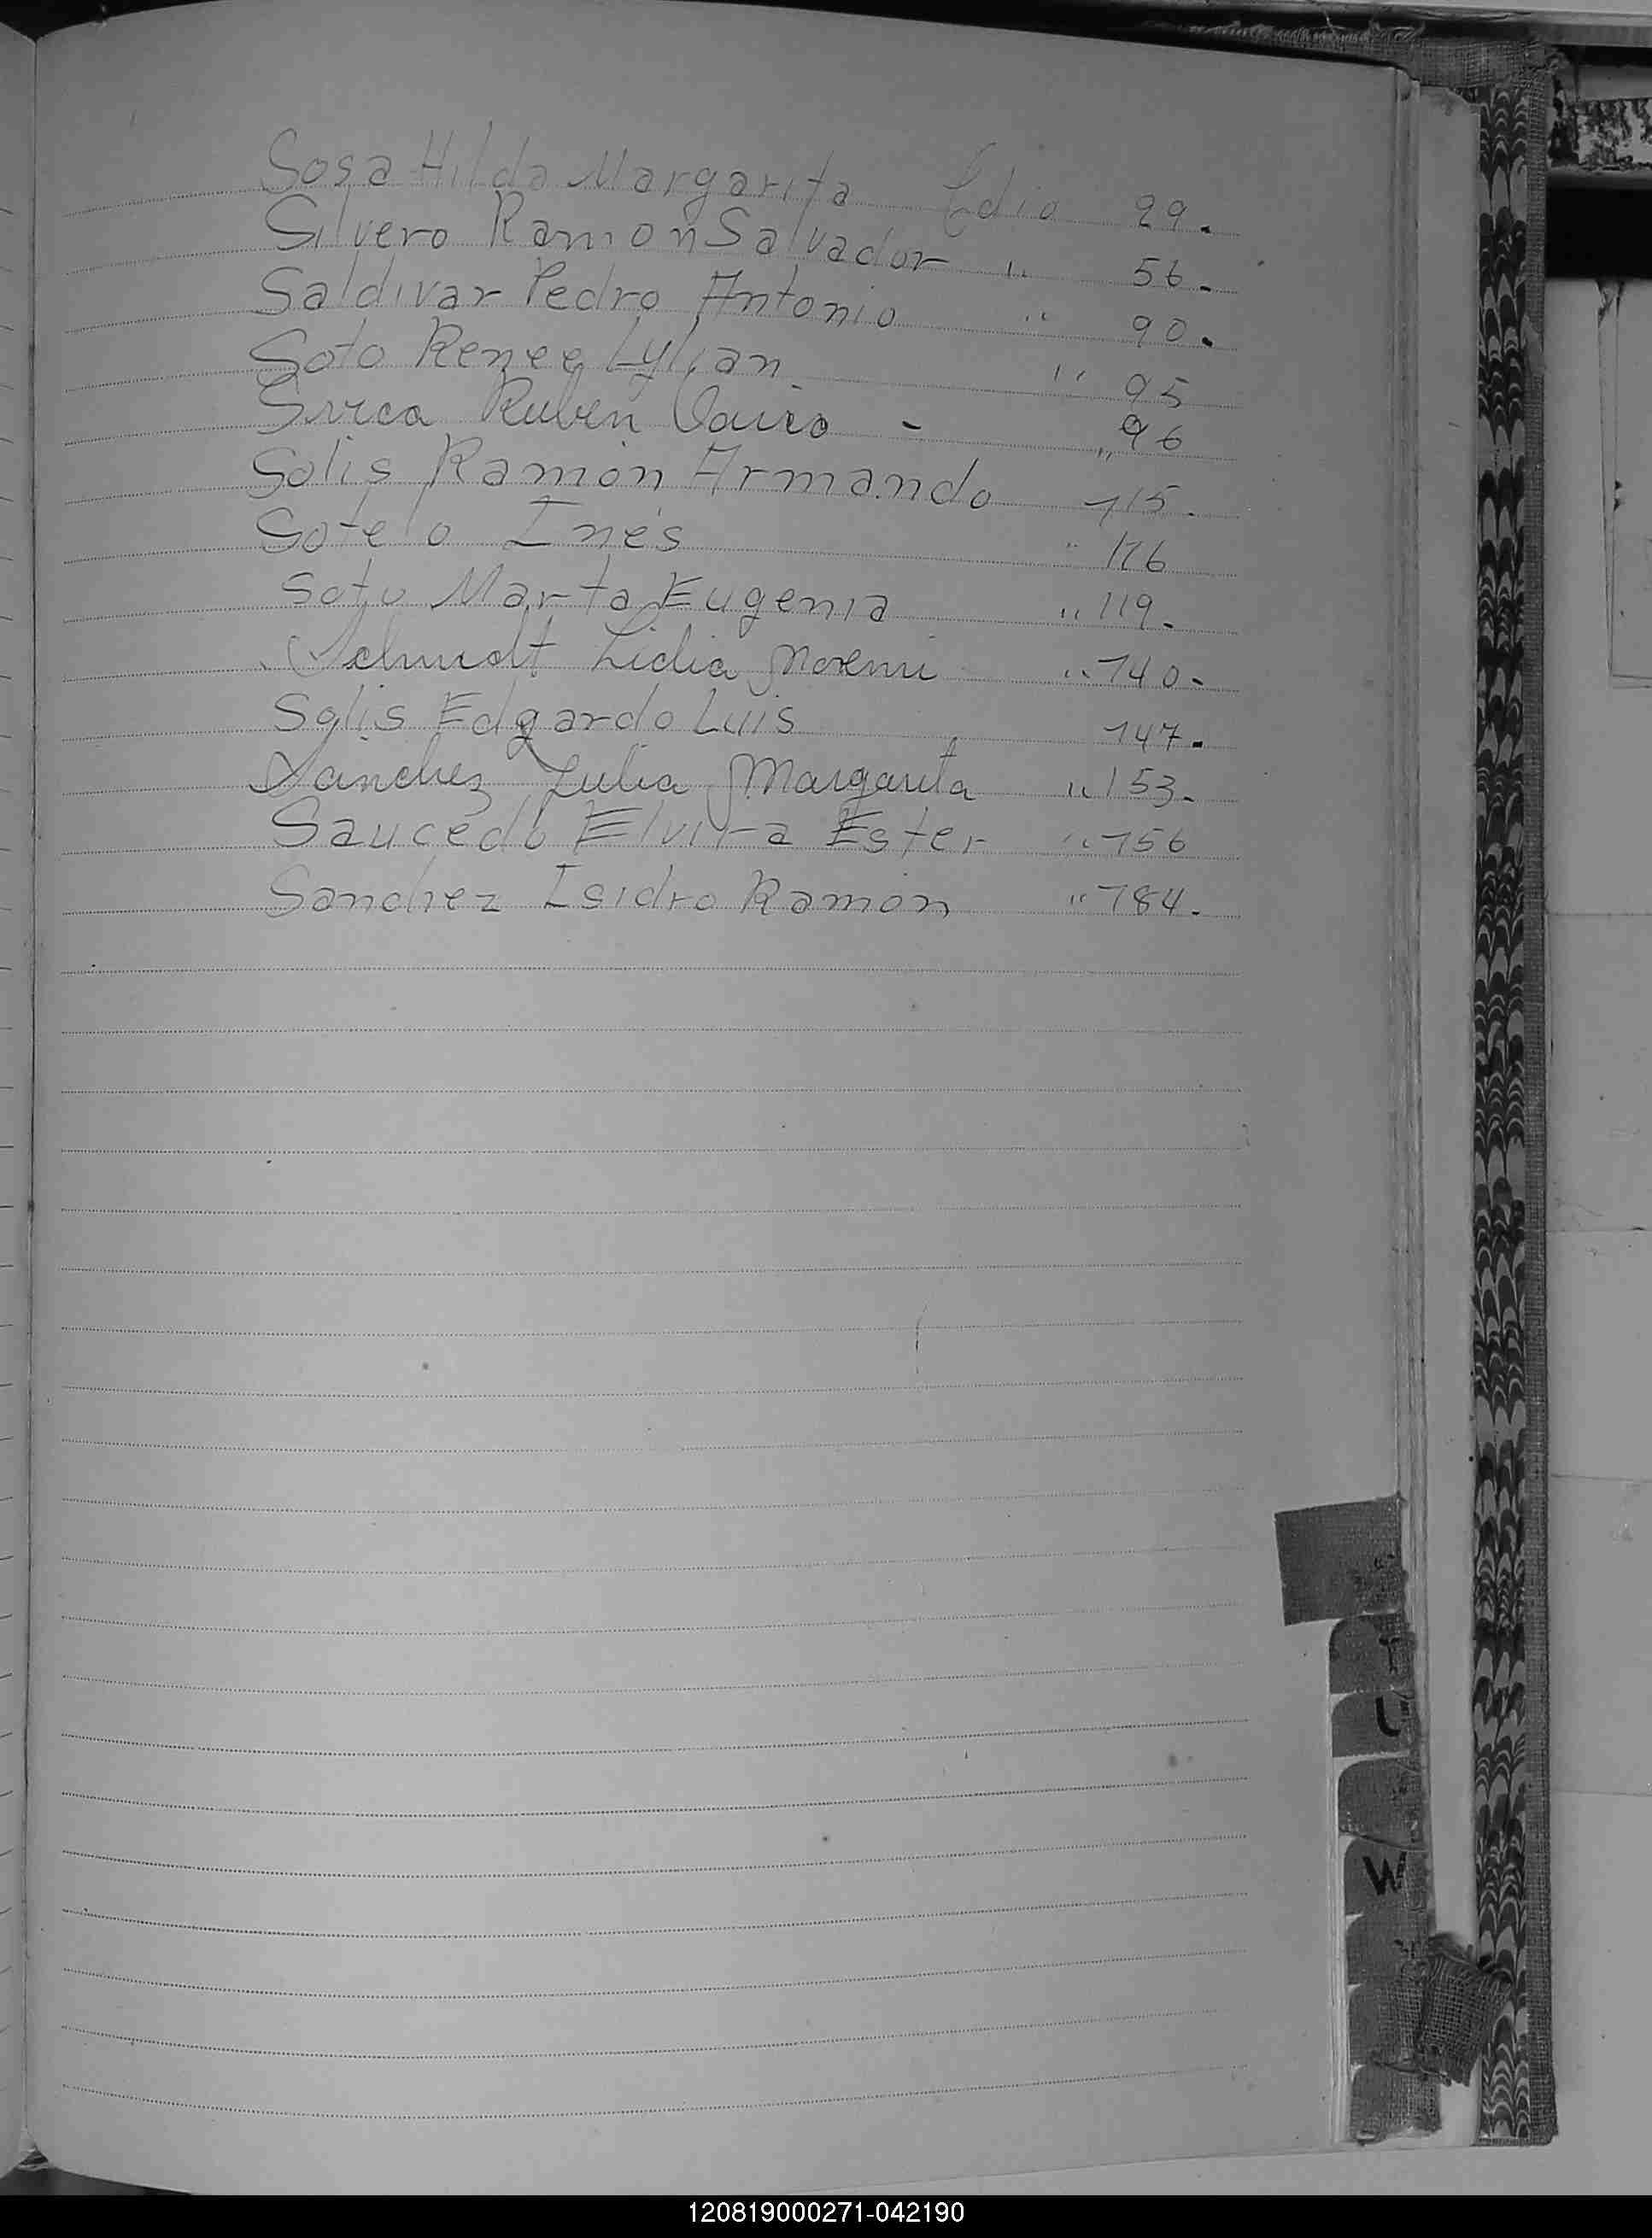 Sosa Hilda Margarita Edio 29.
Silvero Ramón Salvador " 56-
Saldivar Pedro Antonio " 90.
Soto Renee Lylian. " 95
Rubén - " 96
Solis Ramón Armando 115.
Sotelo Inés " 116
Soto Marta Eugenia " 119-
Schmidt Lidia Noemi " 140-
Solis Edgardo Luis 147-
Sanchez Julia Margarita " 153-
Saucedo Elvira Ester " 156
Sanchez Isidro Ramón " 184-
T
U
W
120819000271-042190